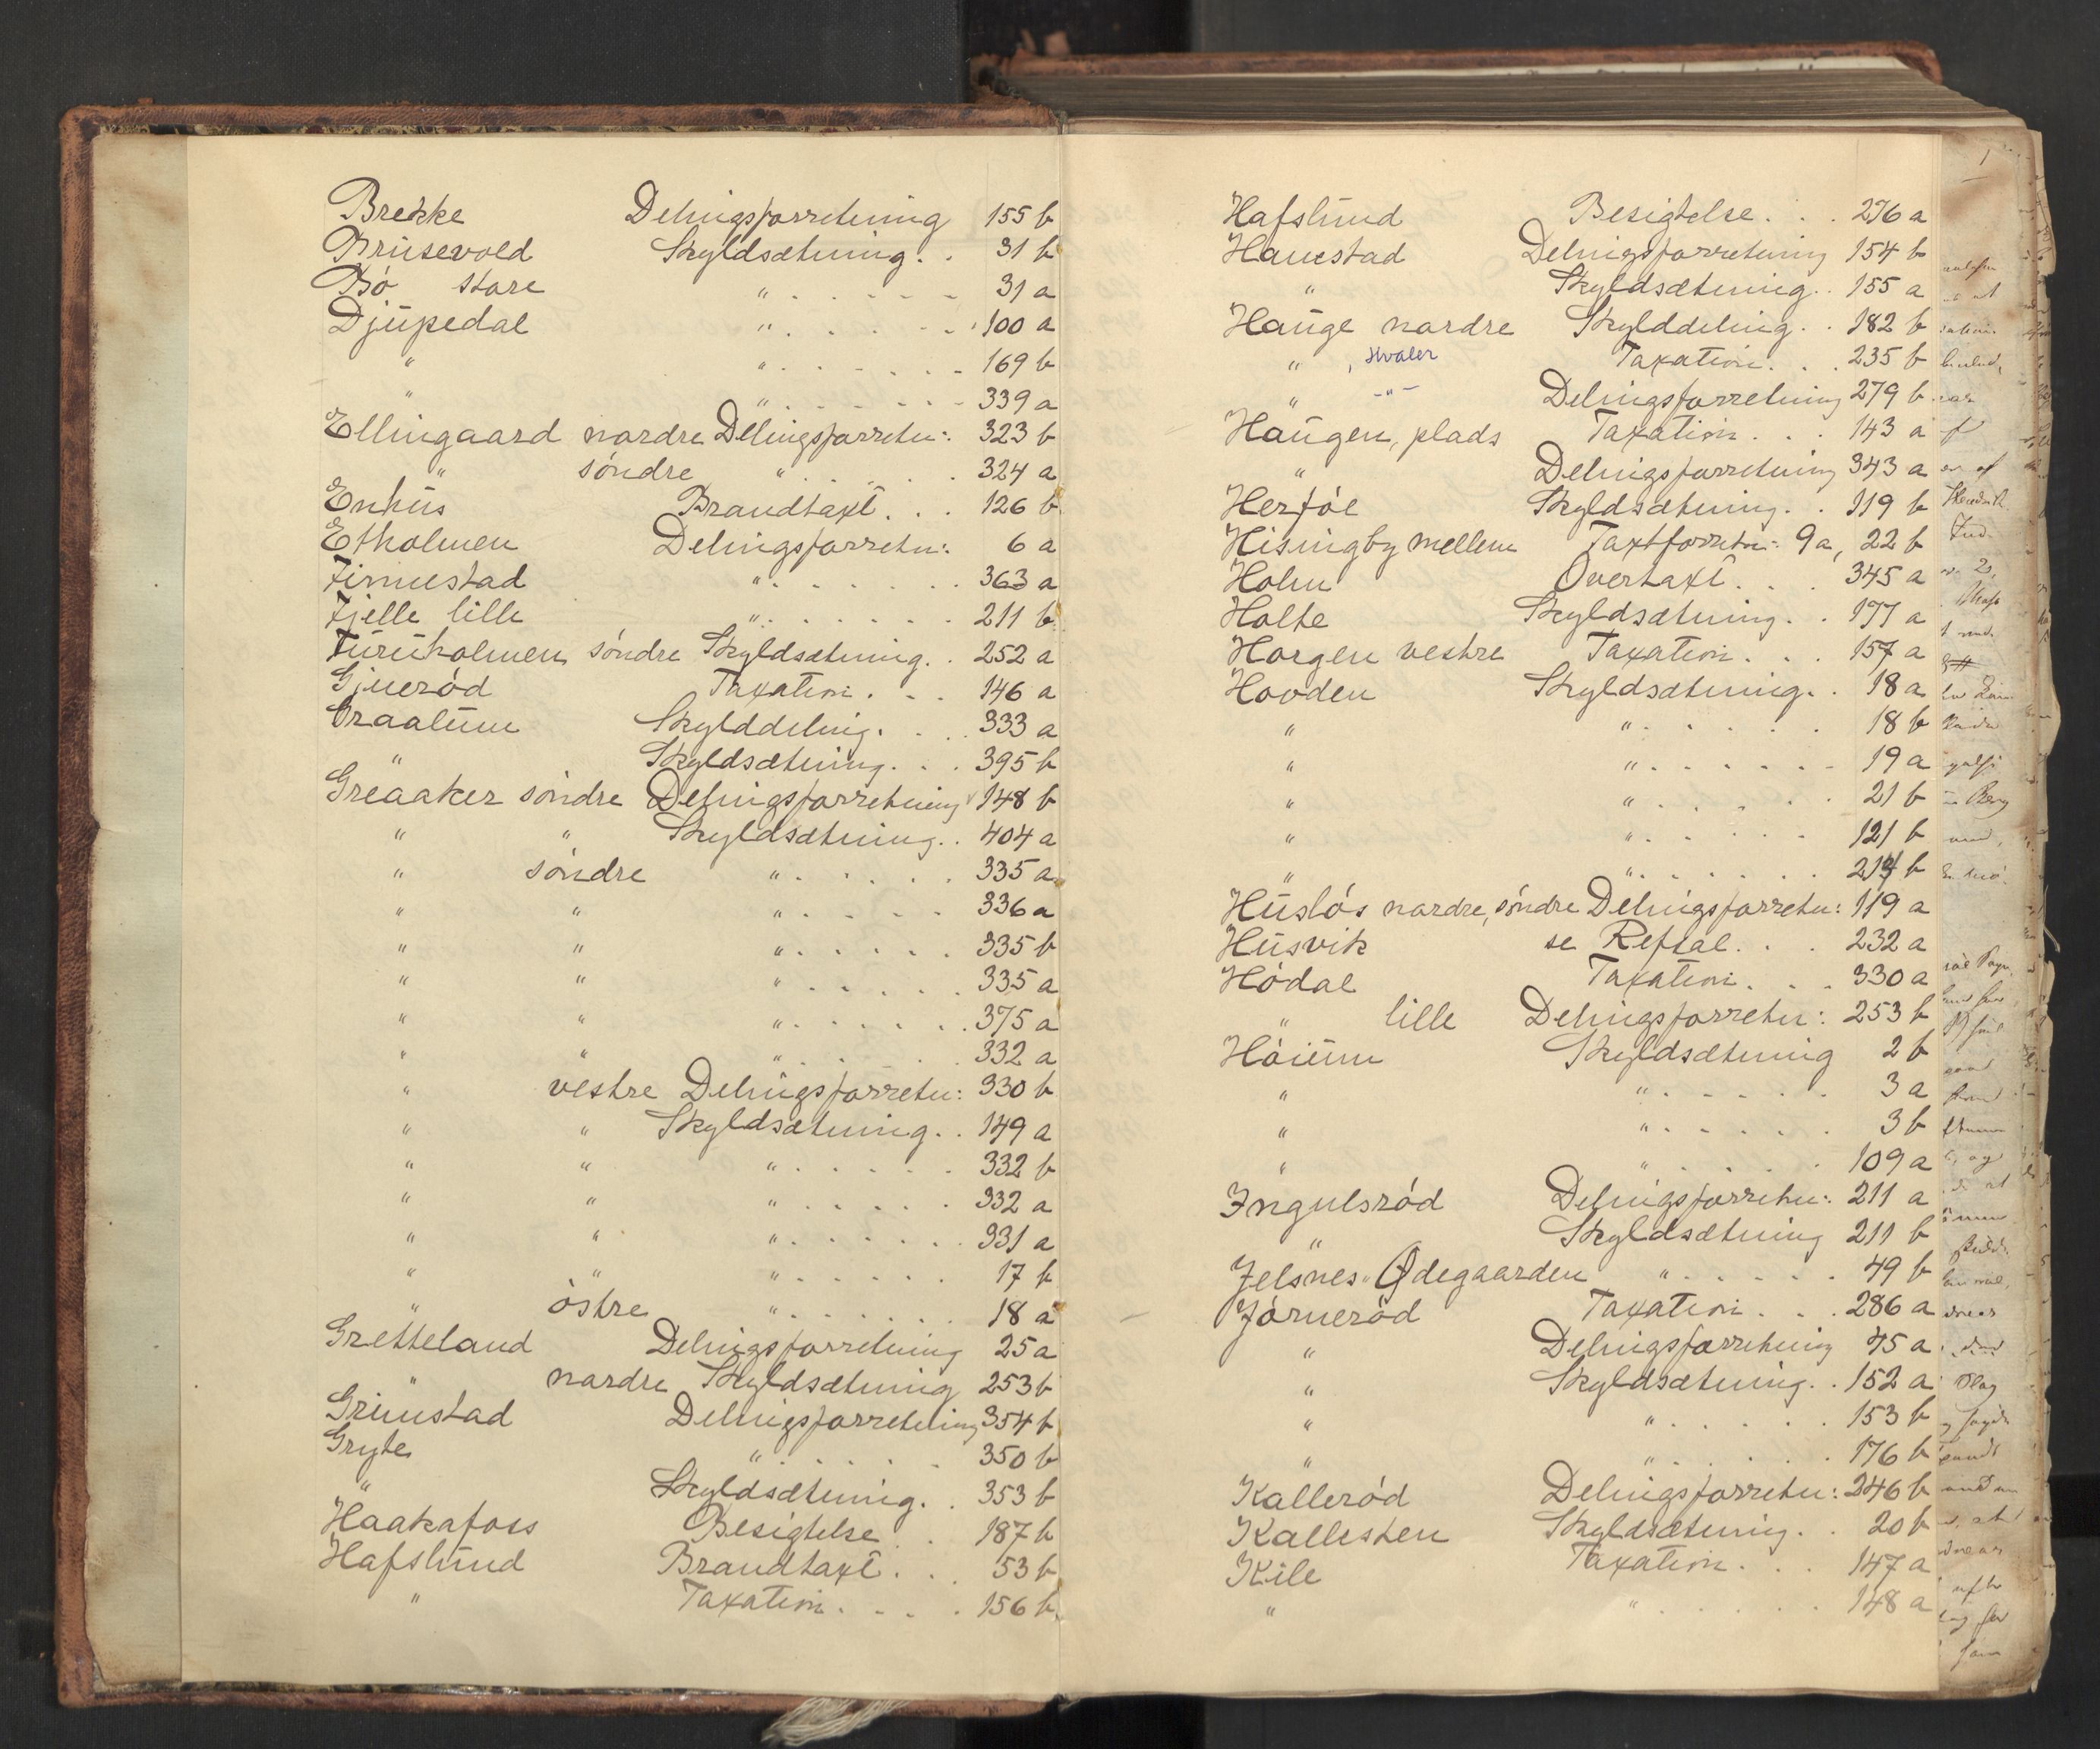 Brekke Delingsforretning 155 b
Brusevold Skyldsætning . . 31 b
Bø store " . . . . . . 31 a
Djupedal " . . . . . . 100 a
" " . . . . . . 169 b
" " . . . . . . 339 a
Ellingaard nordre Delingsforretn: 323 b
" søndre " . . . . . 324 a
Enhus Brandtaxt . . . 126 b
Etholmen Delingsforretn: 6 a
Finnestad " . . . . . . 363 a
Fjelle lille " . . . . . . 211 b
Furuholmen søndre Skyldsætning . . 252 a
Gjuerød Taxation . . . 146 a
Graalum Skylddeling . . . 333 a
" Skyldsætning . . . 395 b
Greaaker søndre Delingsforretning 148 b
" " Skyldsætning . . 404 a
" søndre " . . . . . 335 a
" " " . . . . . 336 a
" " " . . . . . 335 b
" " " . . . . . 335 a
" " " . . . . . . 375 a
" " " . . . . . 332 a
" vestre Delingsforretn: 330 b
" " Skyldsætning . . 149 a
" " " . . . . . 332 b
" " " . . . . . 332 a
" " " . . . . . . 331 a
" " " . . . . . 17 b
" østre " . . . . . . 18 a
Gretteland Delingsforretning 25 a
" nordre Skyldsætning 253 b
Grimstad Delingsforretning 354 b
Gryte " . . . . . 350 b
" Skyldsætning . . 353 b
Haakafoss Besigtelse . . 187 b
Hafslund Brandtaxt . . . 53 b
" Taxation . . . . 156 b
Hafslund Besigtelse . . . 276 a
Hauestad Delingsforretning 154 b
" Skyldsætning . . 155 a
Hauge nordre Skylddeling . . 182 b
" , Hvaler Taxation . . . 235 b
" -"- Delingsforretning 279 b
Haugen, plads Taxation . . . 143 a
" Delingsforretning 343 a
Herføl Skyldsætning . . 119 b
Hisingby mellem Taxtforretn: 9 a, 22 b
Holm Overtaxt . . . 345 a
Holte Skyldsætning . . 177 a
Horgen vestre Taxation . . . 157 a
Hovden Skyldsætning . . 18 a
" " . . . . . 18 b
" " . . . . . . 19 a
" " . . . . . 21 b
" " . . . . . 121 b
" " . . . . . . 214 b
Husløs nordre, søndre Delingsforretn: 119 a
Husvik se Reftal . . . 232 a
Hødal Taxation . . . 330 a
" lille Delingsforretn: 253 b
Høium Skyldsætning 2 b
" " . . . . . 3 a
" " . . . . . 3 b
" " . . . . . 109 a
Ingulsrød Delingsforretn: 211 a
" Skyldsætning 211 b
Jelsnes-Ødegaarden " . . . . . 49 b
Jørnerød Taxation . . . 286 a
" Delingsforretning 45 a
" Skyldsætning . . 152 a
" " . . . . . 153 b
" " . . . . . 176 b
Kallerød Delingsforretn: 246 b
Kallesten Skyldsætning . . 20 b
Kile Taxation . . . 147 a
" " . . . . . 148 a
1